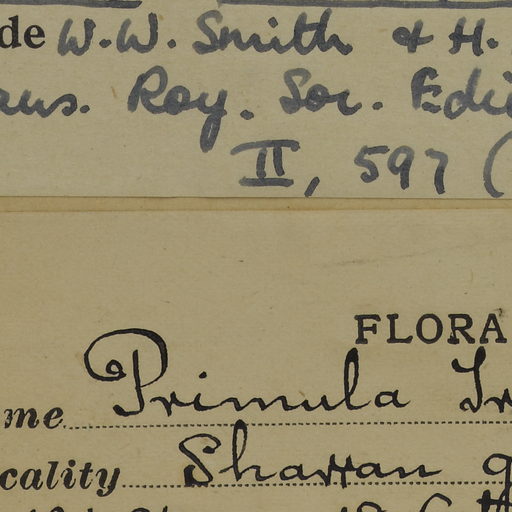 de W.W. Smith & H.
rans. Roy. Soc. Edi
II, 597 (
FLORA
me Primula
cality Sharran g